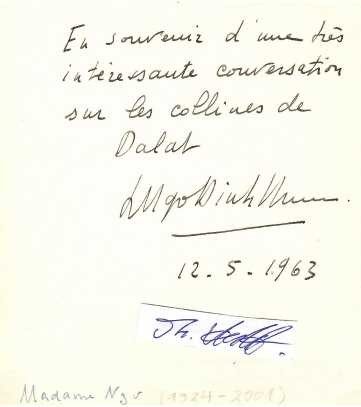 En souvenir d'une très
intéressante conversation
sur les collines de
Dalat
LNgoDinhNhu.
12.5.1963
Th.
Madame Ngo (1924-2001)